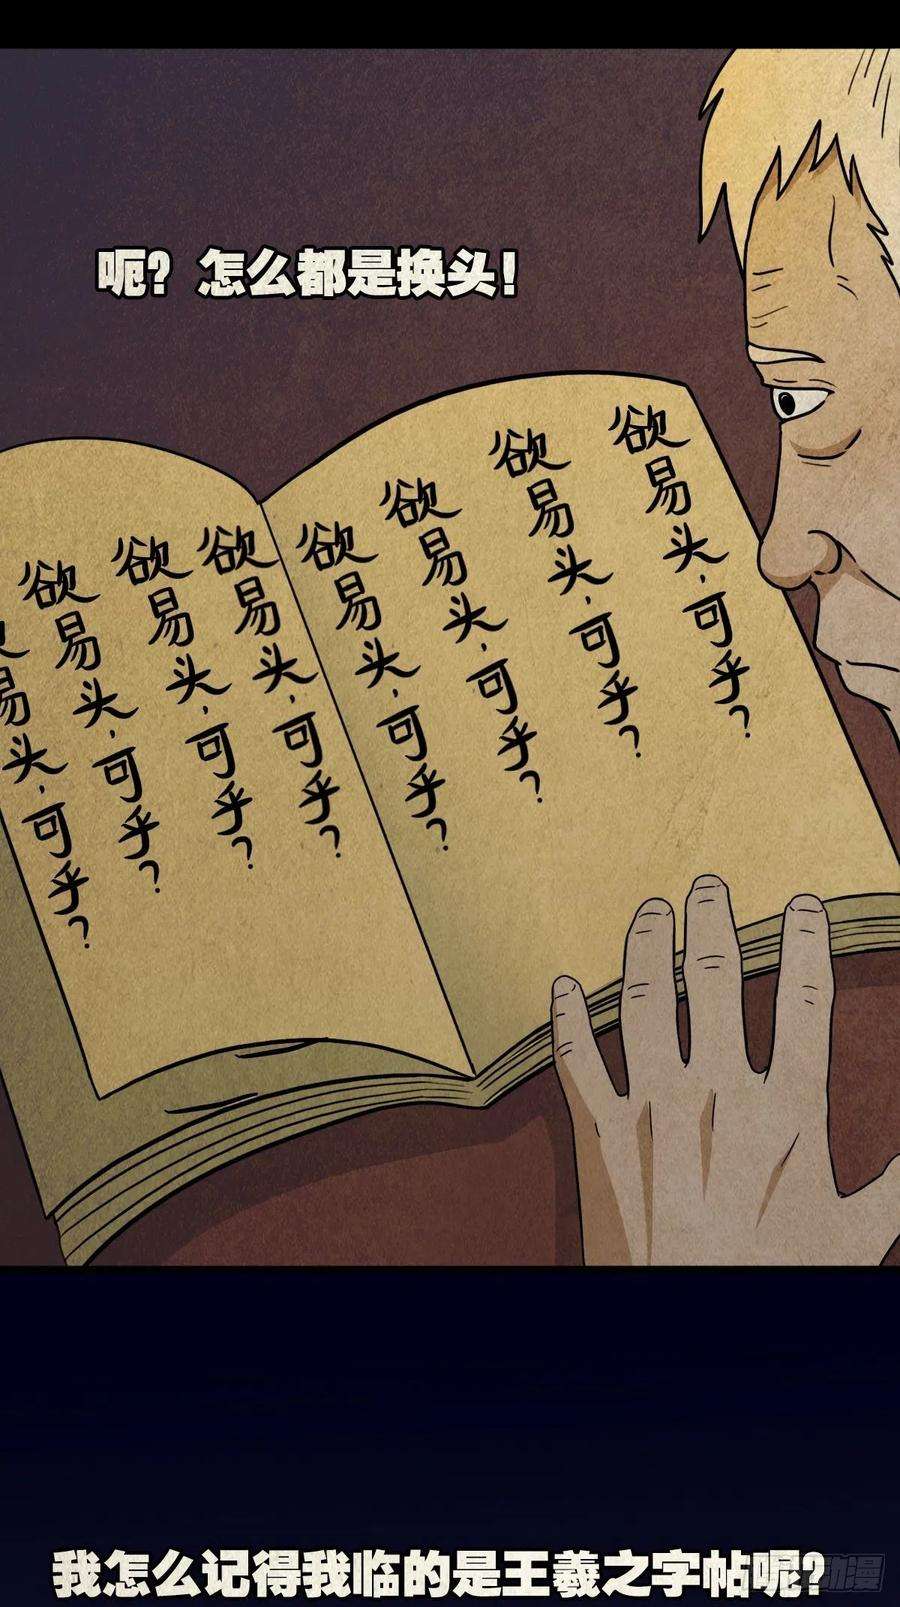 呃？怎么都是换头！
欲易头，可乎？
欲易头，可乎？
欲易头，可乎？
欲易头，可乎？
欲易头，可乎？
欲易头，可乎？
欲易头，可乎？
易头，可乎？
我怎么记得我临的是王羲之字帖呢？